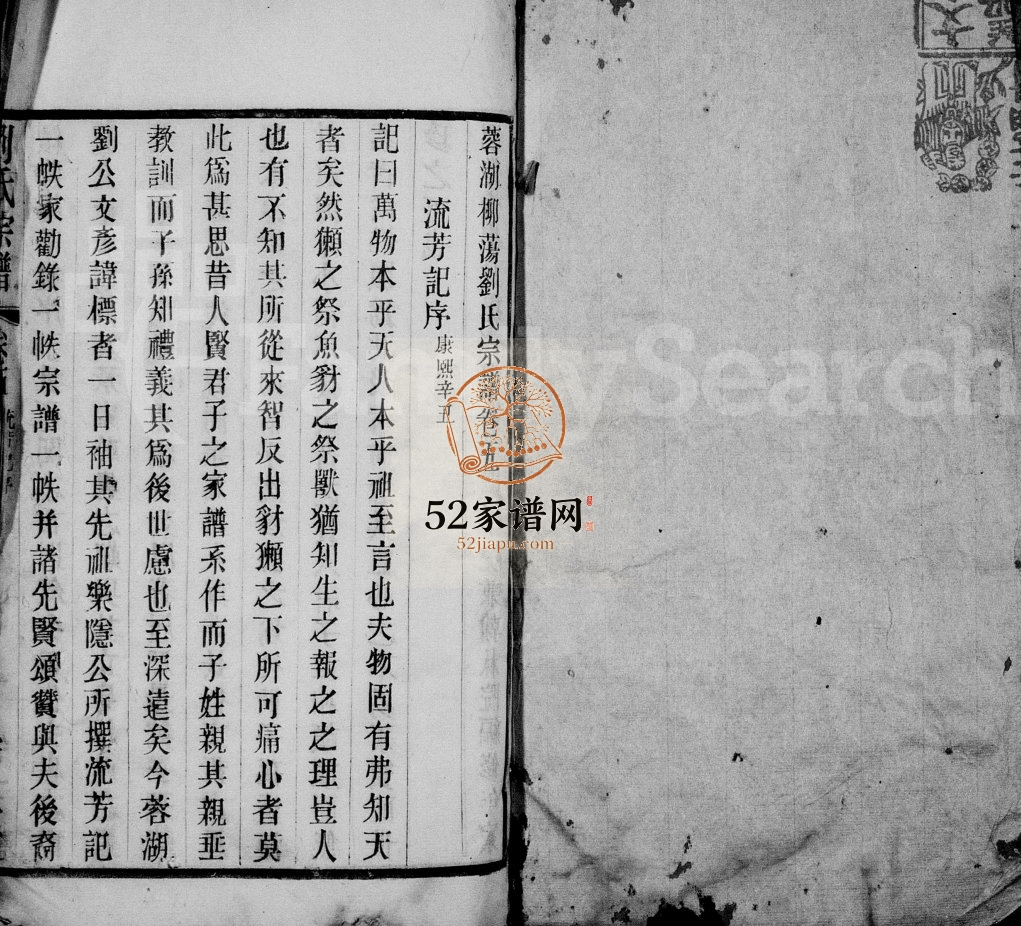 蓉湖柳蕩劉氏宗譜卷五
流芳記序 康熙辛丑
記曰萬物本乎天人本乎祖至言也夫物固有弗知天
者矣然獺之祭魚豺之祭獸猶知生之報之之理豈人
也有不知其所從來智反出豺獺之下所可痛心者莫
此爲甚思昔人賢君子之家譜系作而子姓親其親垂
教訓而子孫知禮義其爲後世慮也至深遠矣今蓉湖
劉公文彥諱標者一日袖其先祖樂隱公所撰流芳記
一帙家勸錄一帙宗譜一帙并諸先賢頌贊與夫後裔
劉氏宗譜
Family Search
52家谱网
52jiapu.com